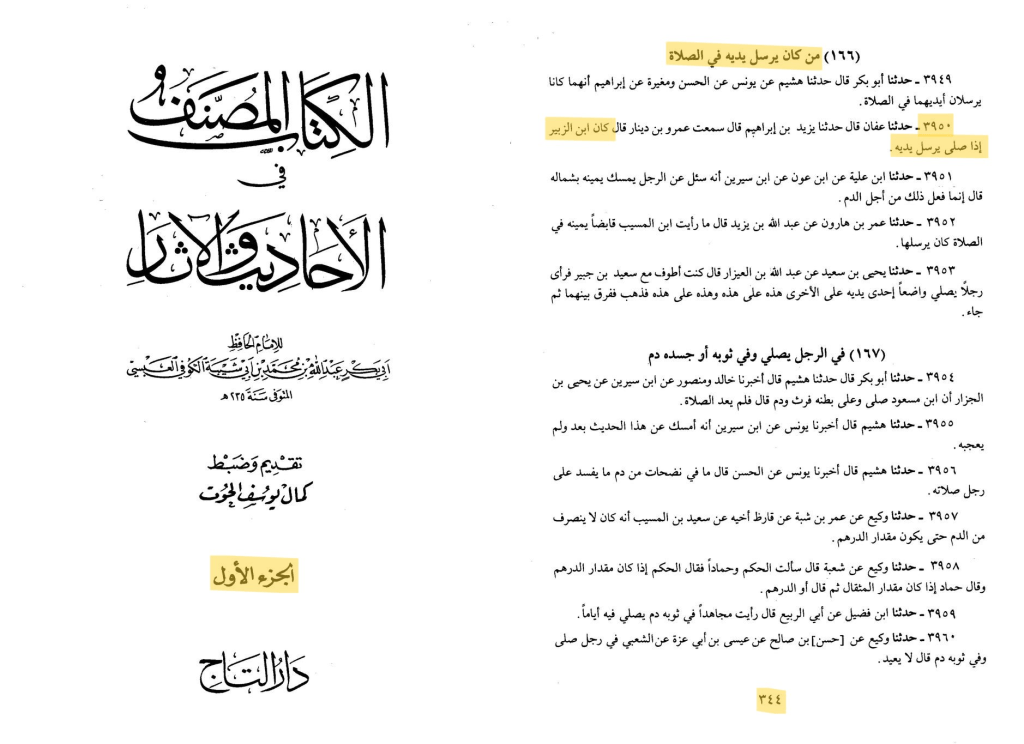 الكتاب المصنف
في
الأحاديث والآثار
للإمام الحافظ
أبي بكر عبد الله بن محمد بن أبي شيبة الكوفي العبسي
المتوفى سنة ٢٣٥ هـ
تقديم وضبط
كمال يوسف الحوت
الجزء الأول
دار التاج
(١٦٦) من كان يرسل يديه في الصلاة
٣٩٤٩ ـ حدثنا أبو بكر قال حدثنا هشيم عن يونس عن الحسن ومغيرة عن إبراهيم أنهما كانا
يرسلان أيديهما في الصلاة .
٣٩٥٠ ـ حدثنا عفان قال حدثنا يزيد بن إبراهيم قال سمعت عمرو بن دينار قال كان ابن الزبير
إذا صلى يرسل يديه .
٣٩٥١ ـ حدثنا ابن علية عن ابن عون عن ابن سيرين أنه سئل عن الرجل يمسك يمينه بشماله
قال إنما فعل ذلك من أجل الدم .
٣٩٥٢ ـ حدثنا عمر بن هارون عن عبد الله بن يزيد قال ما رأيت ابن المسيب قابضاً يمينه في
الصلاة كان يرسلها .
٣٩٥٣ ـ حدثنا يحيى بن سعيد عن عبد الله بن العيزار قال كنت أطوف مع سعيد بن جبير فرأى
رجلاً يصلي واضعاً إحدى يديه على الأخرى هذه على هذه وهذه على هذه فذهب ففرق بينهما ثم
جاء .
(١٦٧) في الرجل يصلي وفي ثوبه أو جسده دم
٣٩٥٤ ـ حدثنا أبو بكر قال حدثنا هشيم قال أخبرنا خالد ومنصور عن ابن سيرين عن يحيى بن
الجزار أن ابن مسعود صلى وعلى بطنه فرث ودم قال فلم يعد الصلاة .
٣٩٥٥ ـ حدثنا هشيم قال أخبرنا يونس عن ابن سيرين أنه أمسك عن هذا الحديث بعد ولم
يعجبه .
٣٩٥٦ ـ حدثنا هشيم قال أخبرنا يونس عن الحسن قال ما في نضحات من دم ما يفسد على
رجل صلاته .
٣٩٥٧ ـ حدثنا وكيع عن عمر بن شبة عن قارظ أخيه عن سعيد بن المسيب أنه كان لا ينصرف
من الدم حتى يكون مقدار الدرهم .
٣٩٥٨ ـ حدثنا وكيع عن شعبة قال سألت الحكم وحماداً فقال الحكم إذا كان مقدار الدرهم
وقال حماد إذا كان مقدار المثقال ثم قال أو الدرهم .
٣٩٥٩ ـ حدثنا ابن فضيل عن أبي الربيع قال رأيت مجاهداً في ثوبه دم يصلي فيه أياماً .
٣٩٦٠ ـ حدثنا وكيع عن [حسن] بن صالح عن عيسى بن أبي عزة عن الشعبي في رجل صلى
وفي ثوبه دم قال لا يعيد .
٣٤٤